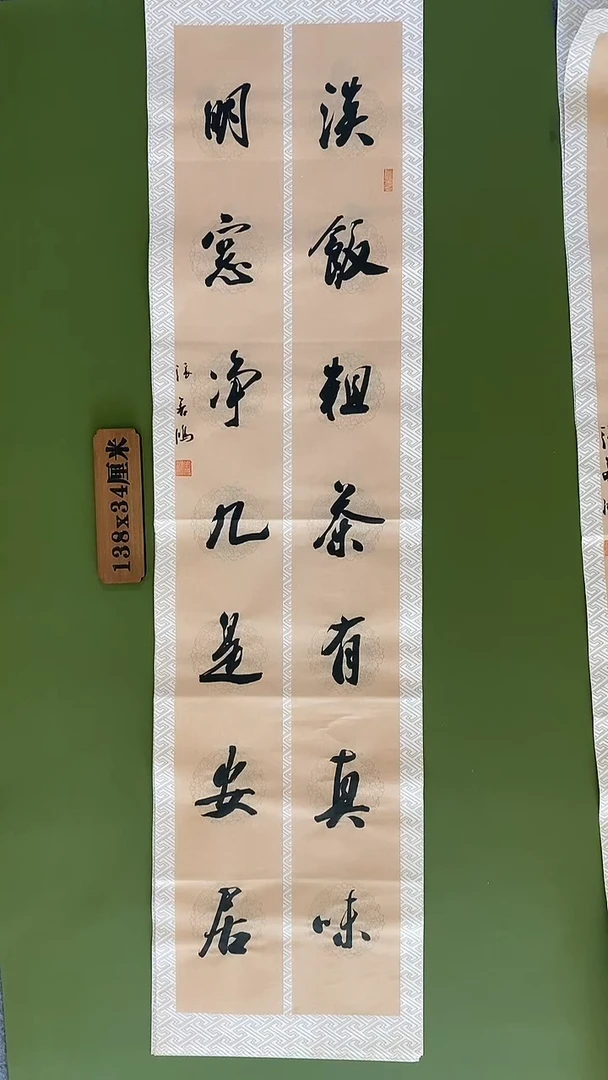 淡飯粗茶有真味
明窓净几是安居
138x34厘米